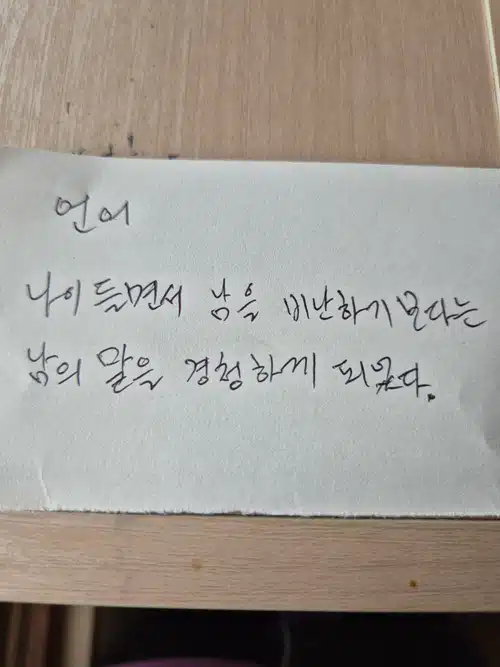 언어
나이 들면서 남을 비난하기보다는
남의 말을 경청하게 되었다.